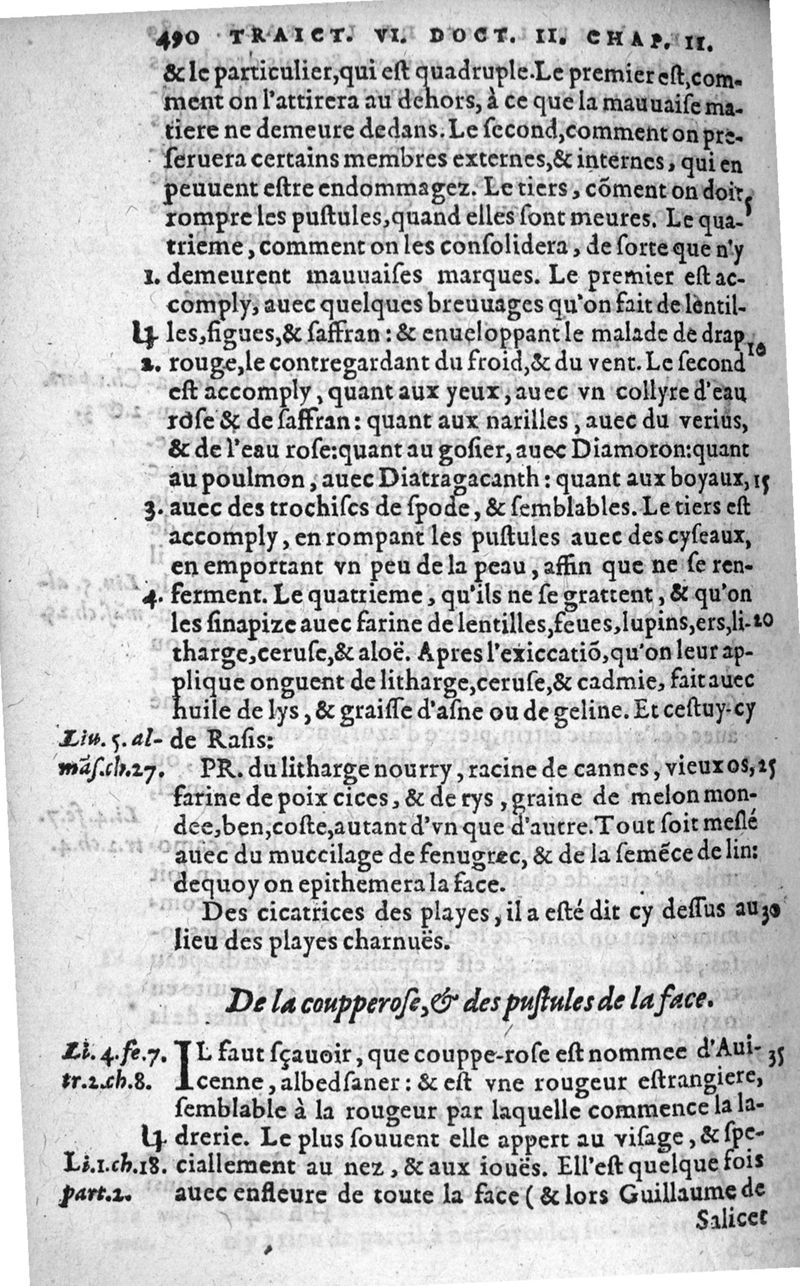 490 TRAICT. VI. DOCT. II. CHAP. II.
& le particulier, qui eſt quadruple. Le premier eſt, com-
ment on l'attirera au dehors, à ce que la mauuaiſe ma-
tiere ne demeure dedans. Le ſecond, comment on pre-
ſeruera certains membres externes, & internes, qui en
peuuent eſtre endommagez. Le tiers, cõment on doit 5
rompre les puſtules, quand elles ſont meures. Le qua-
trieme, comment on les conſolidera, de ſorte que n'y
1. demeurent mauuaiſes marques. Le premier eſt ac-
comply, auec quelques breuuages qu'on fait de lentil-
les, figues, & ſaffran : & enueloppant le malade de drap 10
2. rouge, le contregardant du froid, & du vent. Le ſecond
eſt accomply, quant aux yeux, auec vn collyre d'eau
roſe & de ſaffran : quant aux narilles, auec du verius,
& de l'eau roſe: quant au goſier, auec Diamoron: quant
au poulmon, auec Diatragacanth : quant aux boyaux, 15
3. auec des trochiſcs de ſpode, & ſemblables. Le tiers eſt
accomply, en rompant les puſtules auec des cyſeaux,
en emportant vn peu de la peau, affin que ne ſe ren-
4. ferment. Le quatrieme, qu'ils ne ſe grattent, & qu'on
les ſinapize auec farine de lentilles, feues, lupins, ers, li- 20
tharge, ceruſe, & aloë. Apres l'exiccatiõ, qu'on leur ap-
plique onguent de litharge, ceruſe, & cadmie, fait auec
huile de lys, & graiſſe d'aſne ou de geline. Et ceſtuy-cy
Liu. 5. al- de Raſis:
mãſ. ch. 27. PR. du litharge nourry, racine de cannes, vieux os, 25
farine de poix cices, & de rys, graine de melon mon-
dee, ben, coſte, autant d'vn que d'autre. Tout ſoit meſlé
auec du muccilage de fenugrec, & de la ſemẽce de lin:
dequoy on epithemera la face.
Des cicatrices des playes, il a eſté dit cy deſſus au 30
lieu des playes charnuës.
De la coupperoſe, & des puſtules de la face.
Li. 4. fe. 7. IL faut ſçauoir, que couppe-roſe eſt nommee d'Aui- 35
tr. 2. ch. 8. cenne, albedſaner : & eſt vne rougeur eſtrangiere,
ſemblable à la rougeur par laquelle commence la la-
drerie. Le plus ſouuent elle appert au viſage, & ſpe-
Li. 1. ch. 18. ciallement au nez, & aux iouës. Ell'eſt quelque fois
part. 2. auec enfleure de toute la face ( & lors Guillaume de
Salicet